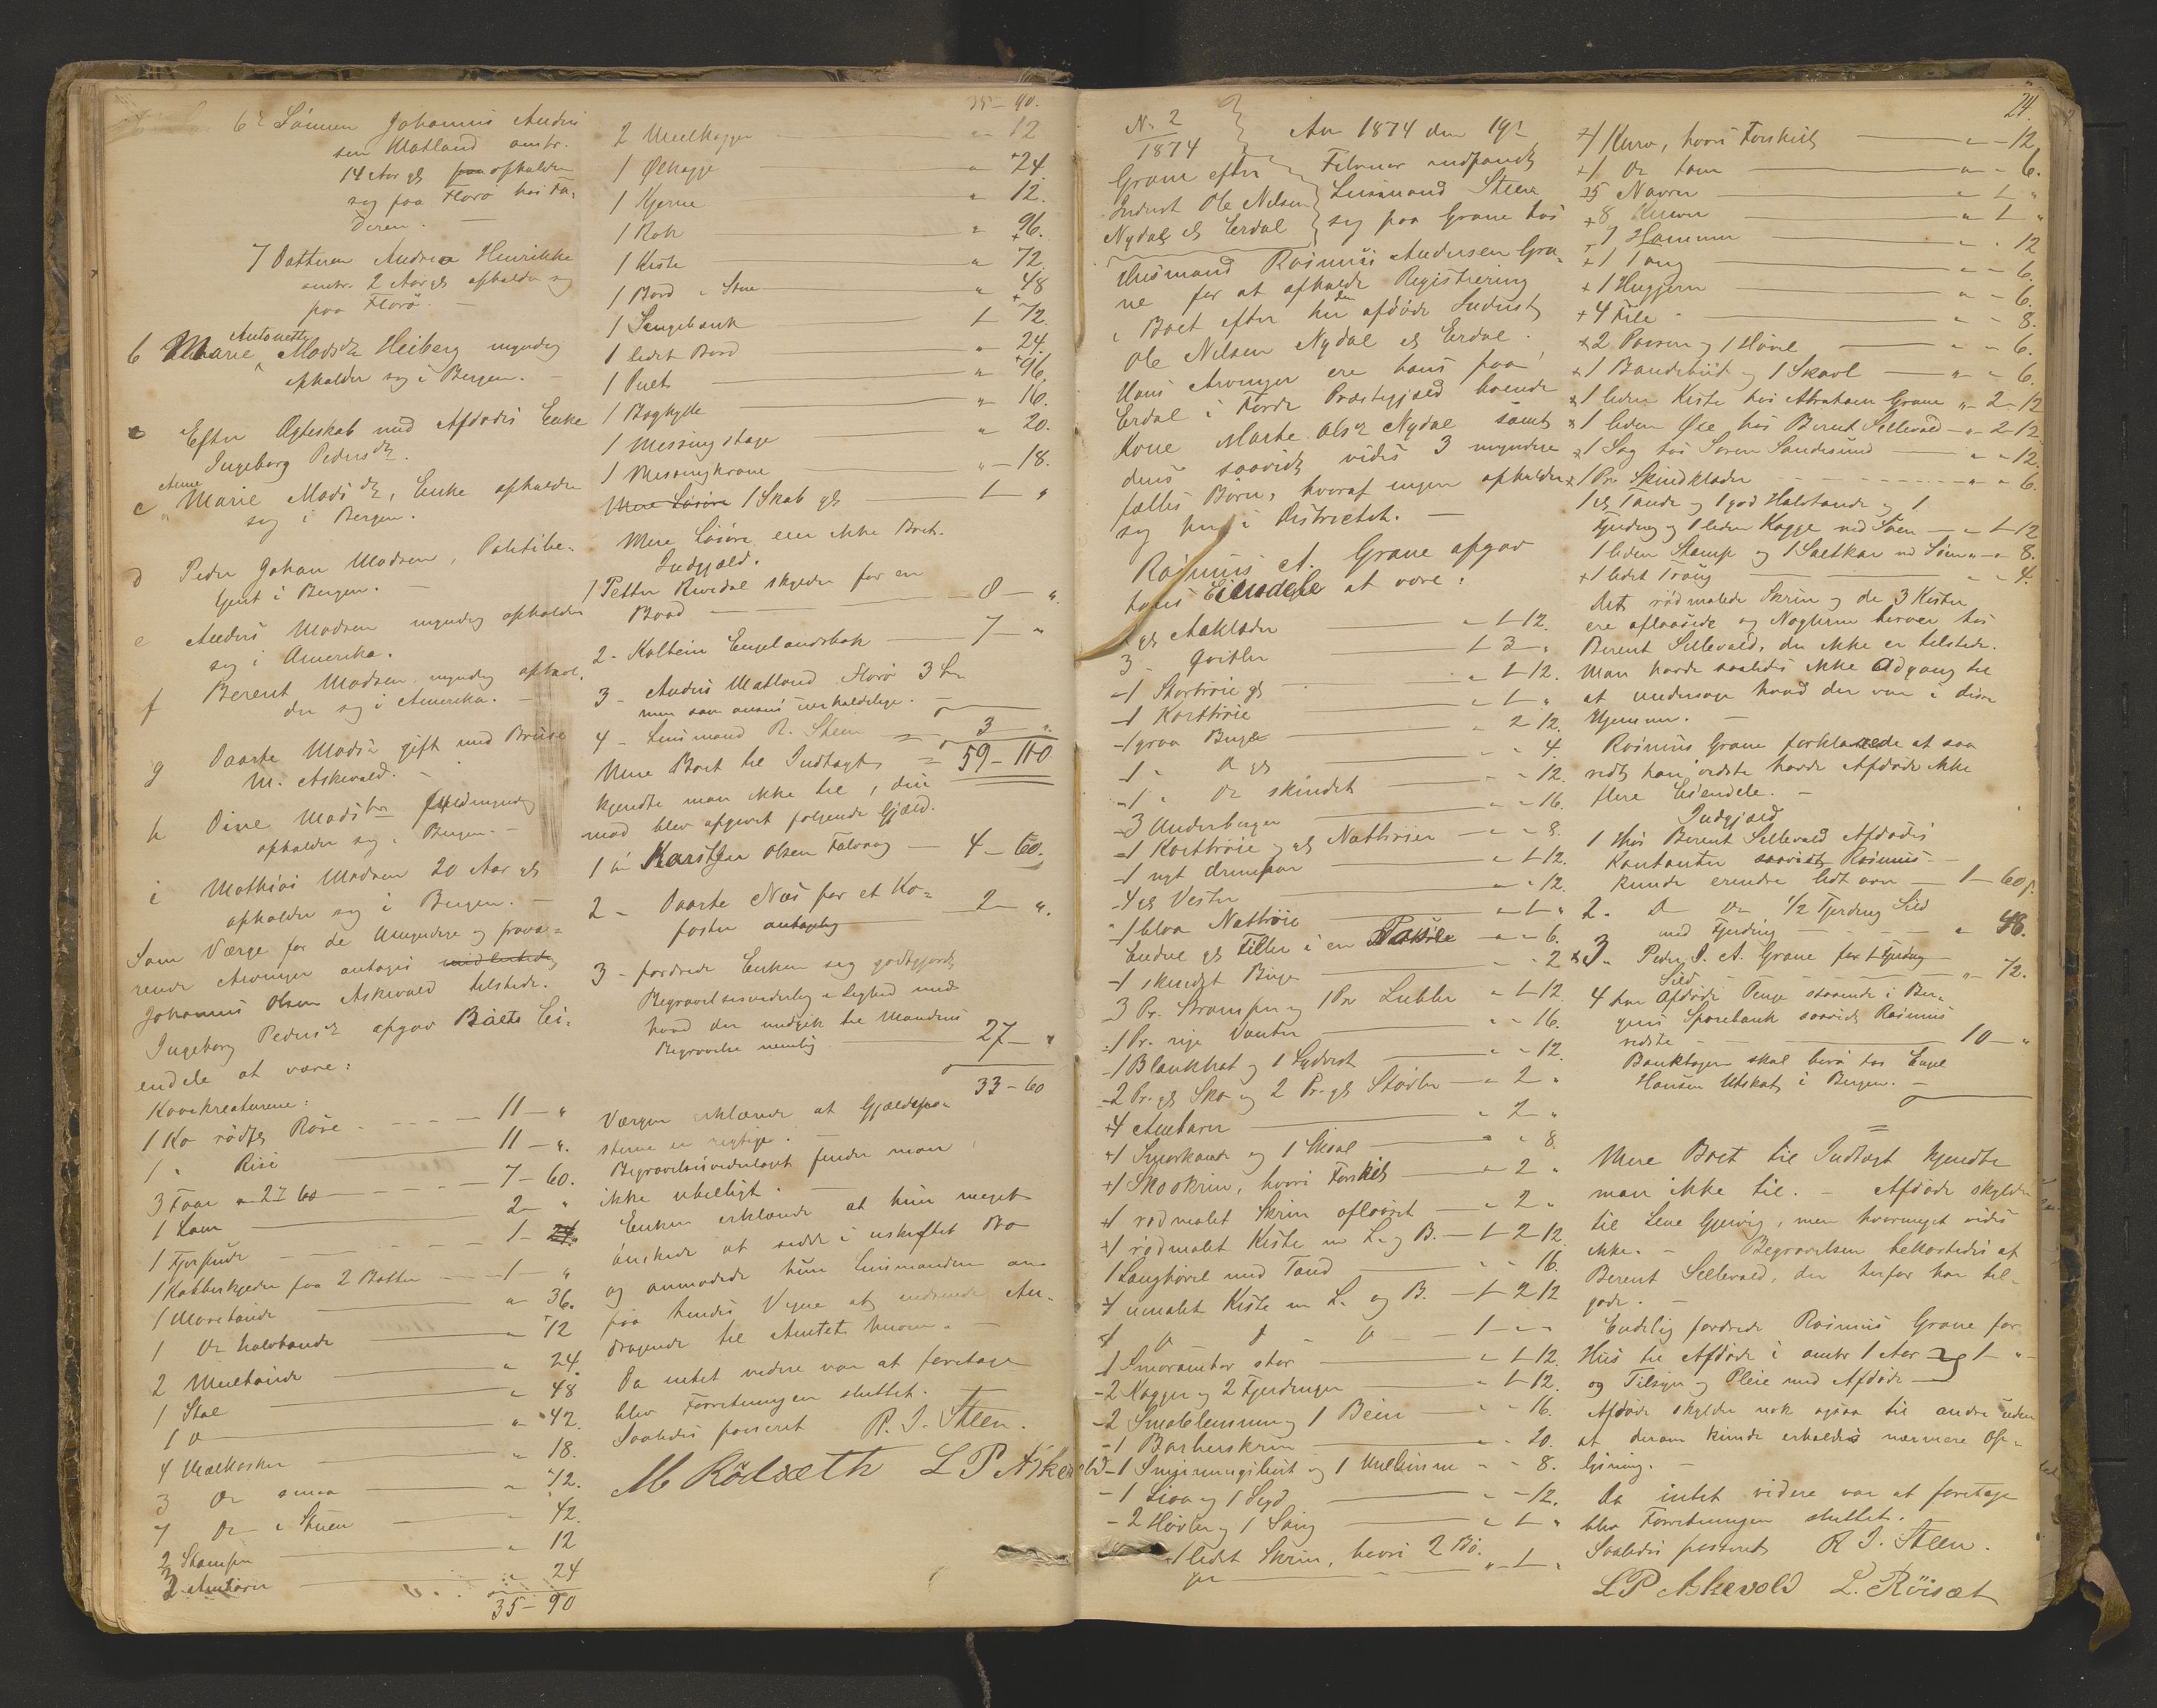 6. Sønnen Johannes Andre
sen Klatland omtr.
14 Aar gl opholder
sig paa Florø hos Fa-
deren.
7 Datteren Andrea Henrikke
omtr. 2 Aar gl opholder sig
paa Florø.
b Marie Antonette Madsdtr Heiberg myndig
opholder sig i Bergen.
Efter Ægteskab med Afdødes Enke
Ingeborg Pedersdtr.
c Anne Marie Madsdtr, Enke opholder
sig i Bergen.
d Peder Johan Madsen, Politibe-
tjent i Bergen.
e Anders Madsen myndig opholder
sig i Amerika.
f Berent Madsen myndig ophol-
der sig i Amerika.
g Daarte Madsdtr gift med
M. Askevold.
h Oline Madsdtr fuldmyndig
opholder sig i Bergen.
i Mathias Madsen 20 Aar gl
opholder sig i Bergen.
Som Værge for de Umyndige og fravæ-
rende Arvinger antages
Johannes Olsen Askevold tilstede.
Ingeborg Pedersdtr opgav Boets Ei-
endele at være:
Kovekreaturene:
1 Ko rødfl Røse 11 - "
1 " Risi 11 - ".
3 Faar a 2 60 7 - 60.
1 Lam 2 - "
1 1 - 24.
1 Kobberkjedel paa 2 Bøtter 1 - "
1 " 36.
1 Do halvtønde " 12
2 Meeltønde " 24
1 Stol " 48
1 D " 42
4 Melkekar " 18.
3 Do smaa " 12.
7 Do i Stuen - 42.
2 Stamper " 12
2 Ambarer " 24
35 - 90
35 - 90.
2 Meelkagger " 12
1 Ølkagge " 24.
1 Kjerne " 12.
1 Rok " 96.
1 Kiste " 72
1 Bord i Stue " 48
1 Sengebænk 1 72.
1 lidet Bord " 24.
1 Pult " 96.
1 Boghylde " 16.
1 Messingstage " 20.
1 Messingkrane " - 18.
Mere Løsøre 1 Skab gl 1 - "
Mere Løsøre eier ikke Boet.
Indgjæld.
1 Petter Rivedal skylder for en
Baad 8 - ".
2 - Kolbein Engelandsbak 7 - "
3 - Anders Matland Florø 3
men som ansees uerholdelige.
4 - Lensmand R. Steen 3 ".
Mere Boet til Indtægt 59 - 110
kjendte man ikke til, der-
mod blev opgivet følgende Gjæld.
1 Karsten Olsen 4 - 60.
2 - Daarte Næs for et Ko-
foster antagelig 2 - ".
3 - fordrede Enken sig godtgjort
Begravelsesvederlag i Lighed med
hvad der medgik til Mandens
Begravelse nemlig 27 - "
33 - 60
Værgen erklærede at Gjældspo-
sterne er rigtige.
Begravelsesvederlaget finder man
ikke ubilligt.
Enken erklærede at hun meget
ønskede at sidde i uskiftet Bo
og anmodede hun Lensmanden om
paa hendes Vegne at An-
dragende til Amtet herom.
Da intet videre var at foretage
blev Forretningen sluttet.
Saaledes passeret R. J. Steen.
M Rödsæth L P Askevold
24.
No. 2
1874
Grane efter
Inderst Ole Nelsen
Nydal el Erdal
Aar 1874 den 19de
Februar indfandt
Lensmand Steen
sig paa Grane hos
Huusmand Rasmus Andersen Gra-
ne for at afholde Registrering
i Boet efter den afdøde Inderst
Ole Nelsen Nydal el Erdal.
Hans Arvinger ere hans paa
Erdal i Førde Præstegjæld boende
Kone Marte Olsdtr Nydal samt
deres saavidt vides 3 myndige
fælles Børn, hvoraf ingen opholder
sig her i Districtet.
Rasmus A. Grane opgav
hans Eiendele at være:
gl Aaklæder " 1-12.
3 1 3 "
-1 Skortrøie gl " 1-12.
-1 Korttrøie " 1 - "
-1 graa Buxe " 2 12.
-1 " D gl " - 4.
-1 " Do skindet " - 12.
-3 Underbuxer " - 16.
-1 Korttrøie og gl Nattrøier " - 8.
-1 nyt " 1-12.
-4 gl Vester " - 12.
-1 blaa Nattrøie " 1 "
Endel gl Filler i en " - 6.
-1 skindet Buxe " - 2
3 Pr. Strømper og 1 Pr Lubber " 1-12.
-1 Pr. nye Vanter " - 16.
-1 Blankhat og 1 Sydvest " - 12.
-2 Pr. gl Sko og 2 Pr. gl Støvler " 2 "
+4 Ambarer " 2 "
+1 Smørkande og 1 Skaal " " 8
+1 Skoskrin, hvori Forskjelligt " 2 "
+1 rødmalet Skrin aflaaset " 2 "
+1 rødmalet Kiste m L. og B. 1 2 12.
1 Langhøvel med Tand " " 16.
+1 umalet Kiste m L. og B. 1 2 12
+1 D D - D 1 - "
-1 Smørambar stor " 1-12.
-2 Kagger og 2 Fjerdinger " 1-12.
-2 og 1 " " 16.
-1 Barberskrin " " 20.
-1 og 1 " " 8.
-1 Ljaa og 1 Sigd " - 12.
-2 Høvler og 1 Saug " 1 "
+1 lidet Skrin, hvori 2 Bø-
ger " 1 "
+1 Kurv, hvori Forskjelligt " - 12
+1 Do tom " " 6.
+5 Navrer " 1 "
+8 Knive " 1 "
+1 Hammer " " 12
+1 Tang " " 6.
+1 Huggjern " " 6.
+4 File " - 8.
+2 og 1 Høvel " - 6.
+1 og 1 Skavl " " 6.
+1 liden Kiste hos Abraham Grane " 2-12
+1 liden Øxe hos Berent Sellevold " 2-12.
+1 Sag hos Søren Sandesund " - 12.
+1 Pr. Skindklæder " " 6.
1 gl Tønde og 1 god Halvtønde og 1
Fjerding og 1 liden Kagge ved Søen " 1-12
1 liden Stamp og 1 Saltkar ved Søen " " 8.
+1 lidet Traug " " 4.
Det rødmalede Skrin og de 3 Kister
ere aflaasede og Nøglerne herver hos
Berent Sellevold, der ikke er tilstede.
Man havde saaledes ikke Adgang til
at undersøge hvad der var i disse
Gjemmer.
Rasmus Grane forklarede at saa
vidt han vidste havde Afdøde ikke
flere Eiendele.
Indgjæld
1 Hos Berent Sellevold Afdødes
Kontanter saavidt Rasmus
kunde erindre lidt over 1 - 60 s.
2. D Do 1/2 Fjerding Sild
med Fjerding " 48.
+3. Peder J. A. Grane for 1 Fjerding
Sild " 72.
4 har Afdøde Penge staaende i Ber-
gens Sparebank saavidt Rasmus
vidste 10 - "
Bankbogen skal bero hos Engel
Hansen Utskot i Bergen.
Mere Boet til Indtægt kjendte
man ikke til. - Afdøde skylder
til Lene Gjervig, men hvormeget vides
ikke. - Begravelsen bekostedes af
Berent Sellevold, der herfor har til-
gode.
Endelig fordrede Rasmus Grane for
Huus til Afdøde i omtr 1 Aar 1 - "
og Tilsyn og Pleie med Afdøde
Afdøde skylder nok ogsaa til andre uden
at derom kunde erholdes nærmere Op-
lysning.
Da intet videre var at foretage
blev Forretningen sluttet.
Saaledes passeret R J. Steen.
L P Askevold L. Röisæt